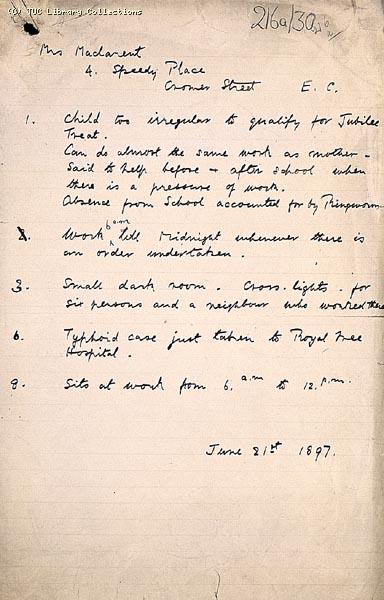 (c) TUC Library Collections
216a/30
Mrs Maclarent
4. Speedy Place
Cromer Street E. C.
1. Child too irregular to qualify for Jubilee
Treat.
Can do almost the same work as mother -
Said to help before + after school when
there is a pressure of work.
Absence from School accounted for by Ringworm
2. Work 6 a.m till Midnight whenever there is
an order undertaken.
3. Small dark room. Cross. lights. for
six persons and a neighbour who worked there
6. Typhoid case just taken to Royal Free
Hospital.
9. Sits at work from 6. a.m to 12. p.m.
June 21st 1897.